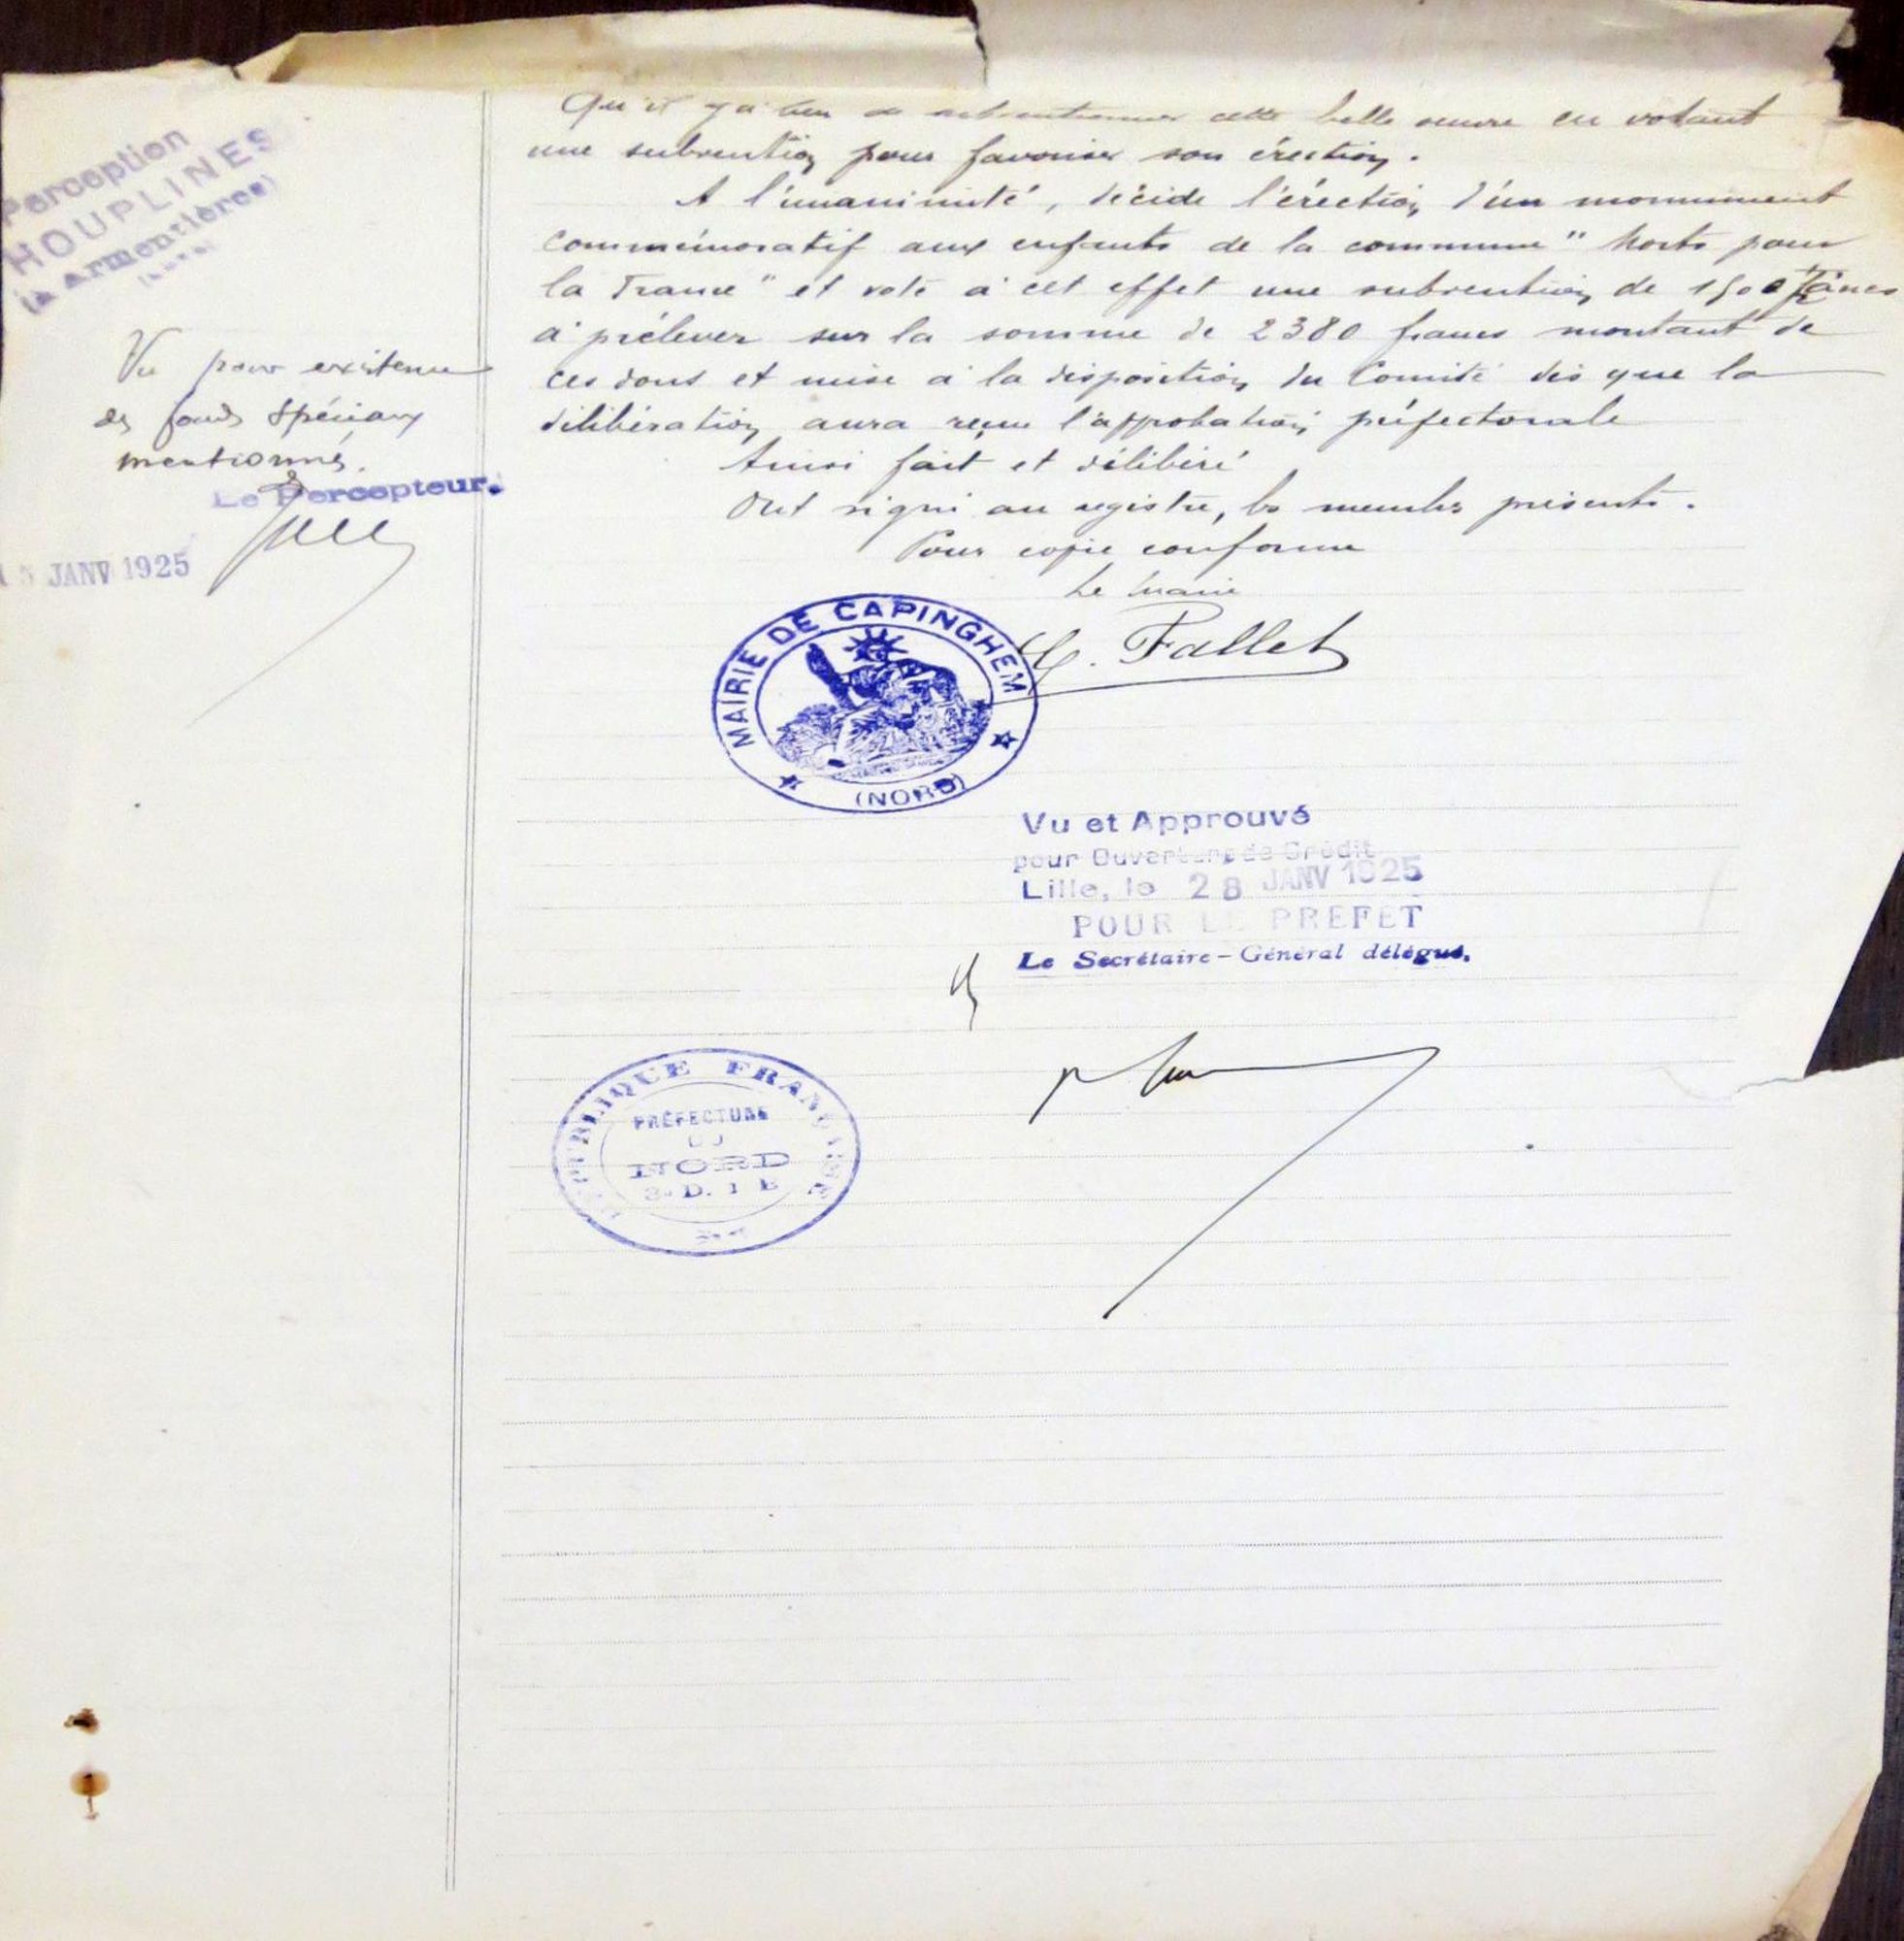 Perception
HOUPLINES
(à Armentières)
Vu pour existence
des fonds spéciaux
mentionnés.
Le Percepteur.
JANV 1925
Qu'il y a lieu de subventionner cette belle œuvre en votant
une subvention pour favoriser son érection.
A l'unanimité, décide l'érection d'un monument
commémoratif aux enfants de la commune "Morts pour
la France" et vote à cet effet une subvention de 1500 francs
à prélever sur la somme de 2380 francs montant de
ces dons et mise à la disposition du Comité dès que la
délibération aura reçu l'approbation préfectorale
Ainsi fait et délibéré
Ont signé au registre, les membres présents.
Pour copie conforme
Le Maire
Fallet
MAIRIE DE CAPINGHEM
(NORD)
Vu et Approuvé
pour Ouverture de Crédit
Lille, le 28 JANV 1925
POUR LE PREFET
Le Secrétaire-Général délégué.
RÉPUBLIQUE FRANÇAISE
PRÉFECTURE
DU
NORD
3e D. 1 B